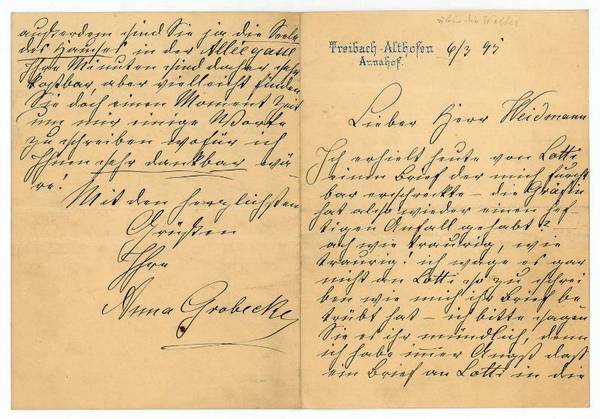 über die Wolter
Treibach-Althofen
Annahof.
6/3 95
Lieber Herr Weidmann
Ich erhielt heute von Lotti
einen Brief der mich furcht
bar erschreckte – die Gräfin
hat also wieder einen hef-
tigen Anfall gehabt?
ach wie traurig, wie
traurig! ich wage es gar
nicht an Lotti so zu schrei
ben wie mich ihr Brief be
trübt hat – ich bitte sagen
Sie es ihr mündlich, denn
ich habe imer Angst daß
ein Brief an Lotti in die
außerdem sind Sie ja die Seele
des Hauses in der Alleegasse
Ihre Minuten sind daher sehr
kostbar, aber vielleicht finden
Sie doch einen Moment Zeit
um mir einige Worte
zu schreiben wofür ich
Ihnen sehr dankbar wä-
re!
Mit den herzlichsten
Grüßen
Ihre
Anna Grobecke